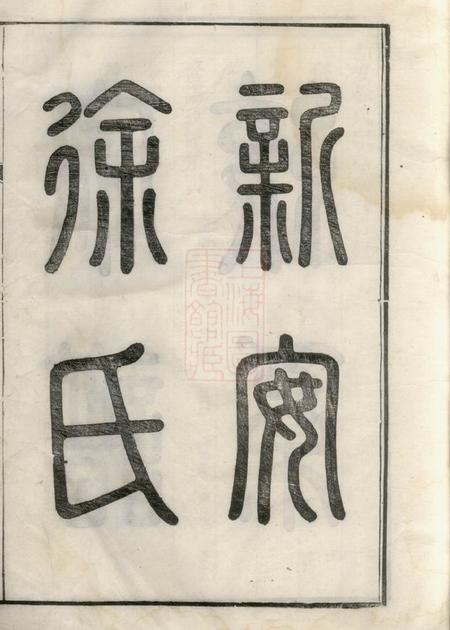 新安
徐氏